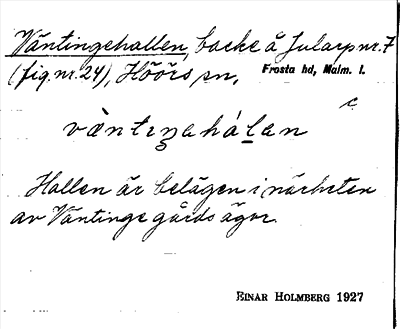 Väntingehallen, backe å Jularp nr. 7
(fig. nr. 24), Höörs sn, Frosta hd, Malm. l.
c.
vàntıŋahálan
Hallen är belägen i närheten
av Väntinge gårds ägor.
EINAR HOLMBERG 1927